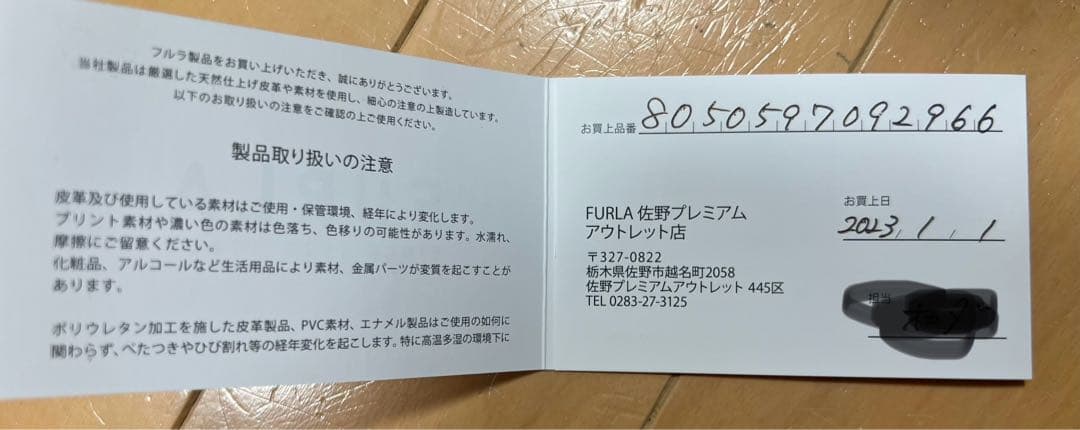 フルラ製品をお買い上げいただき、誠にありがとうございます。
当社製品は厳選した天然仕上げ皮革や素材を使用し、細心の注意の上製造しています。
以下のお取り扱いの注意をご確認の上ご使用ください。
製品取り扱いの注意
皮革及び使用している素材はご使用・保管環境、経年により変化します。
プリント素材や濃い色の素材は色落ち、色移りの可能性があります。水濡れ、
摩擦にご留意ください。
化粧品、アルコールなど生活用品により素材、金属パーツが変質を起こすことが
あります。
ポリウレタン加工を施した皮革製品、PVC素材、エナメル製品はご使用の如何に
関わらず、べたつきやひび割れ等の経年変化を起こします。特に高温多湿の環境下に
お買上品番 8050597092966
お買上日
2023, 1, 1
FURLA 佐野プレミアム
アウトレット店
〒327-0822
栃木県佐野市越名町2058
佐野プレミアムアウトレット 445区
TEL 0283-27-3125
担当